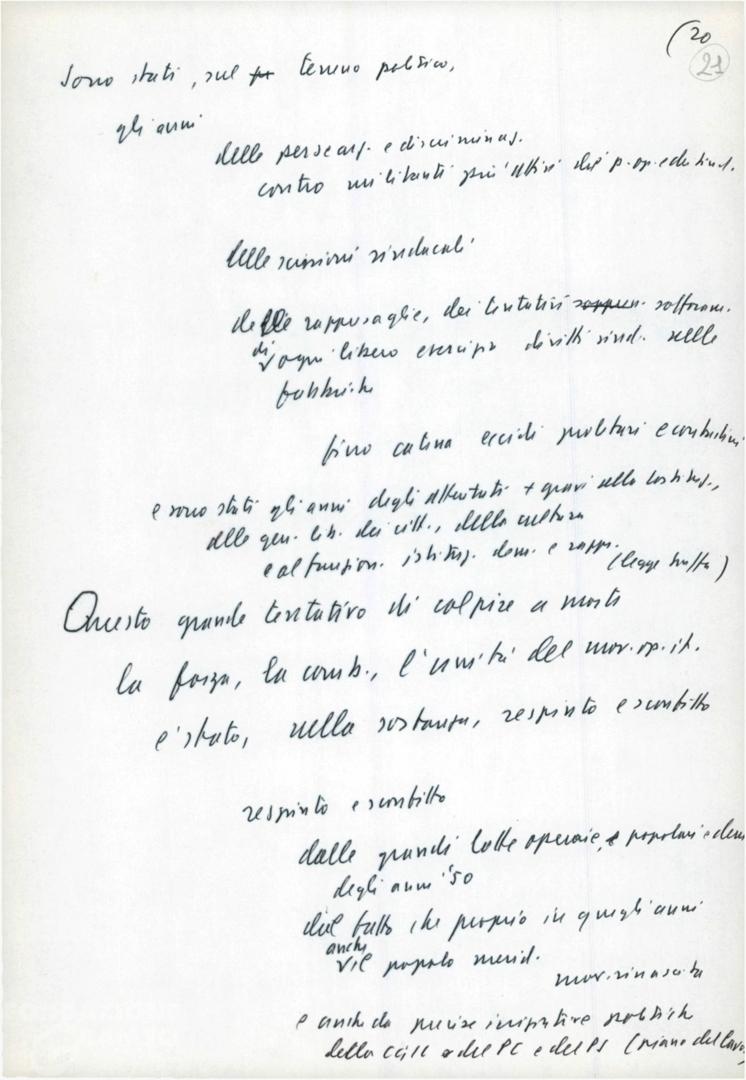 (20
21
Sono stati, sul terreno politico,
gli anni
delle persecuz. e discriminaz.
contro militanti più attivi dei p. op. e del sind.
delle scissioni sindacali
delle rappresaglie, dei tentativi soffocam.
di ogni libero esercizio diritti sind. nelle
fabbriche
fino catena eccidi proletari e contadini
e sono stati gli anni degli attentati + gravi alla Costituz.,
alle gen. lib. dei citt., della cultura
e al funzion. istituz. dem. e rapp.
(legge truffa)
Questo grande tentativo di colpire a morte
la forza, la comb., l'unità del mov. op. it.
è stato, nella sostanza, respinto e sconfitto
respinto e sconfitto
dalle grandi lotte operaie, popolari e dem
degli anni '50
dal fatto che proprio in quegli anni
anche il popolo merid.
mov. rinascita
e anche da precise iniziative politiche
della CGIL e del PC e del PS (piano del lavo